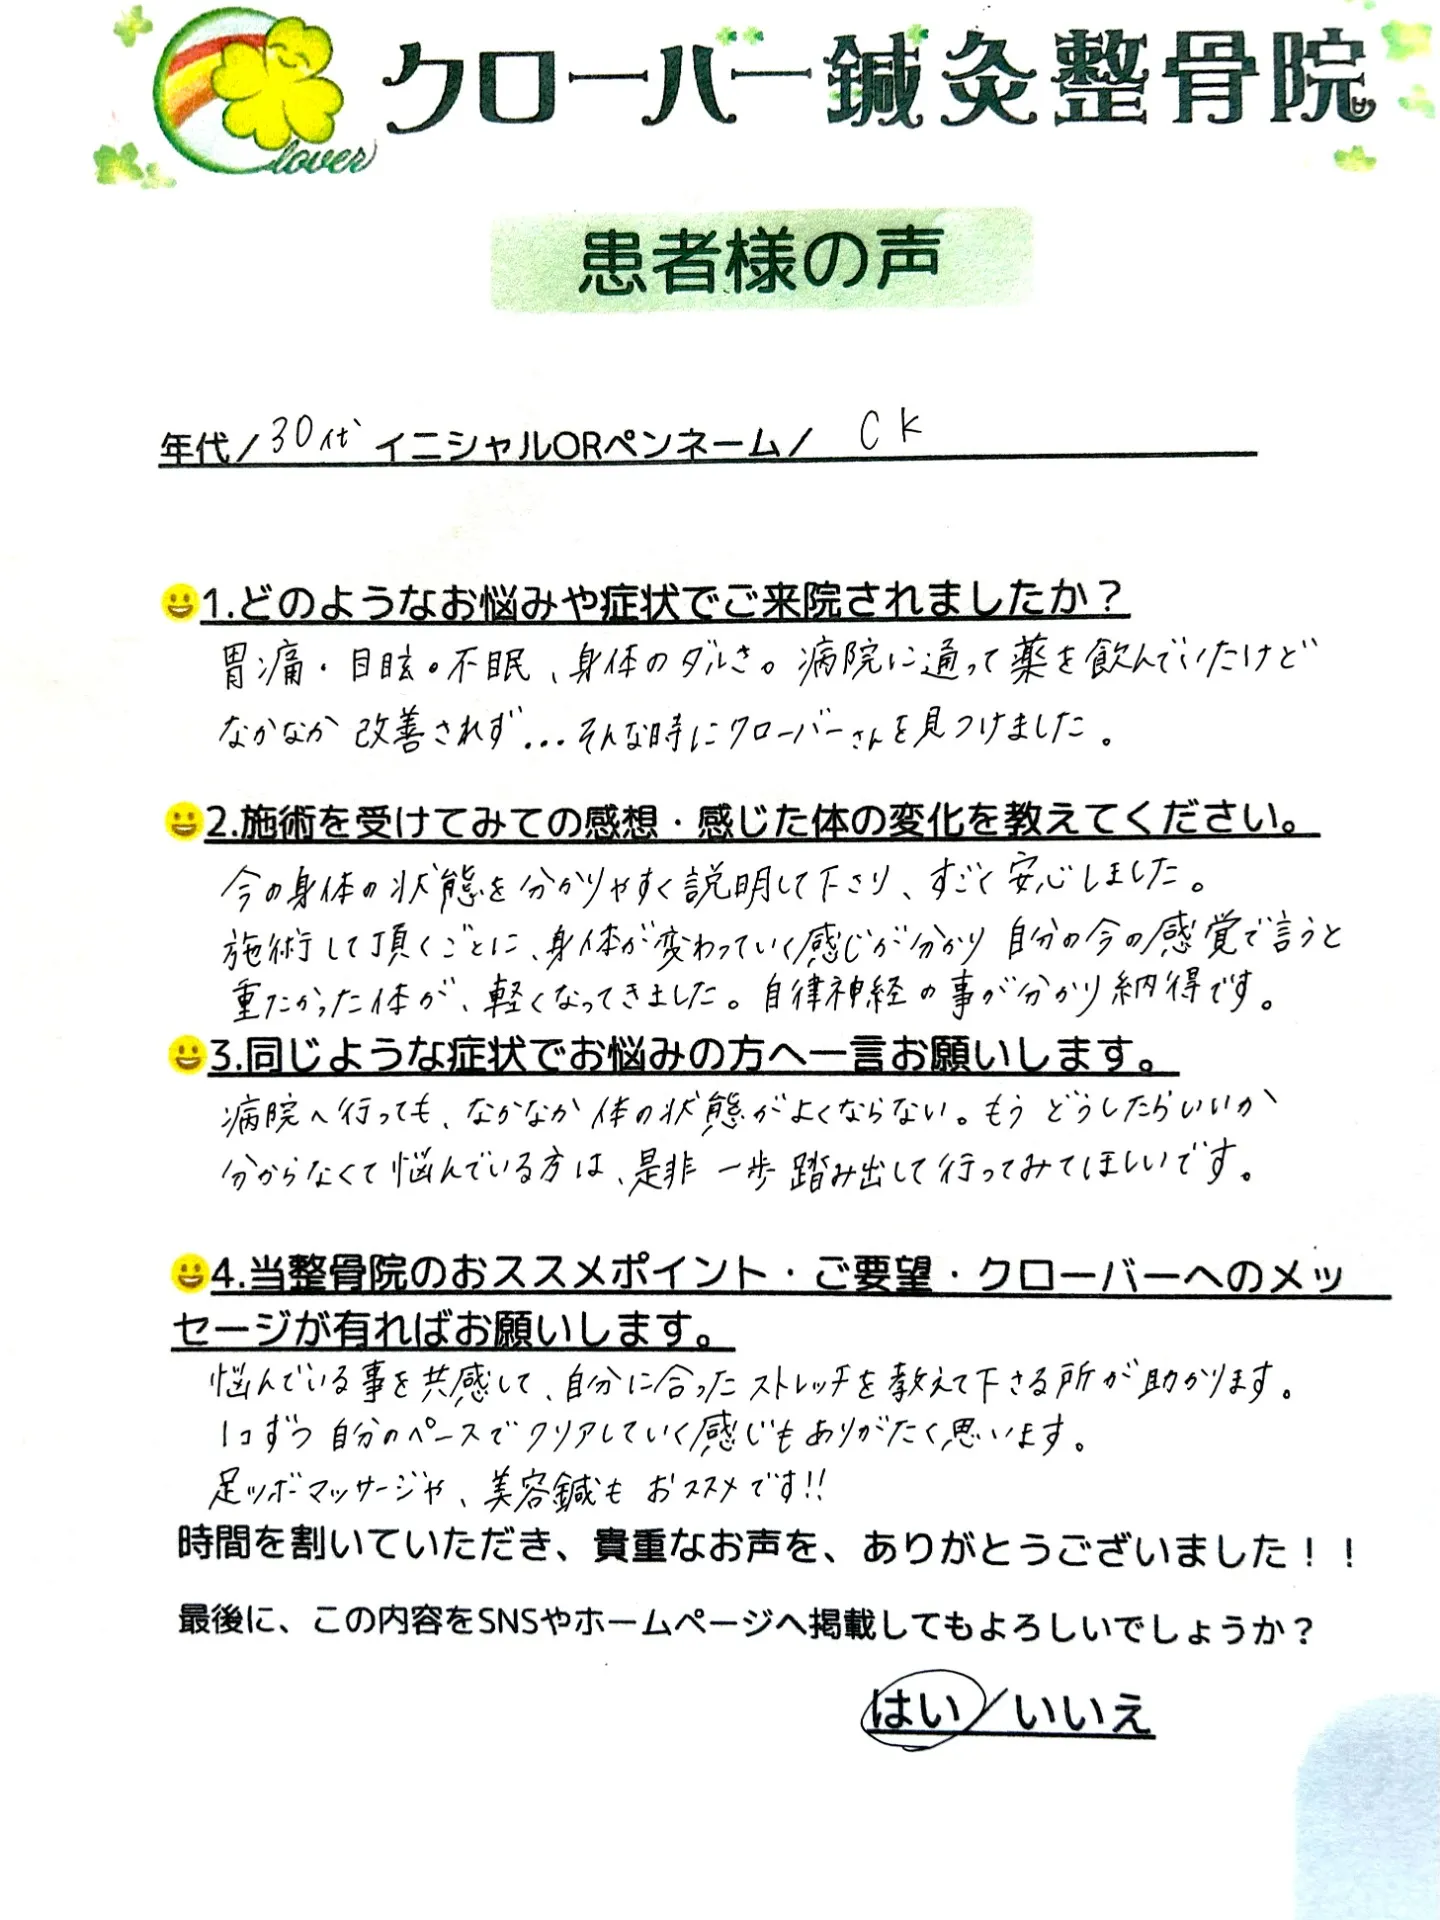 Clover
クローバー鍼灸整骨院
患者様の声
年代/30代 イニシャルORペンネーム/ CK
1.どのようなお悩みや症状でご来院されましたか？
胃痛・目眩。不眠、身体のダルさ。病院に通って薬を飲んでいたけど
なかなか改善されず...そんな時にクローバーさんを見つけました。
2.施術を受けてみての感想・感じた体の変化を教えてください。
今の身体の状態を分かりやすく説明して下さり、すごく安心しました。
施術して頂くごとに、身体が変わっていく感じが分かり 自分の今の感覚で言うと
重たかった体が、軽くなってきました。自律神経の事が分かり納得です。
3.同じような症状でお悩みの方へ一言お願いします。
病院へ行っても、なかなか体の状態がよくならない。もう どうしたらいいか
分からなくて悩んでいる方は、是非 一歩踏み出して行ってみてほしいです。
4.当整骨院のおススメポイント・ご要望・クローバーへのメッ
セージが有ればお願いします。
悩んでいる事を共感して、自分に合ったストレッチを教えて下さる所が助かります。
1コずつ自分のペースでクリアしていく感じもありがたく思います。
足ツボマッサージや、美容鍼もおススメです!!
時間を割いていただき、貴重なお声を、ありがとうございました！！
最後に、この内容をSNSやホームページへ掲載してもよろしいでしょうか？
はい/いいえ